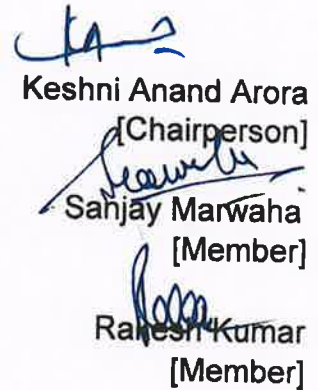 Keshni Anand Arora
[Chairperson]
Sanjay Marwaha
[Member]
Rakesh Kumar
[Member]